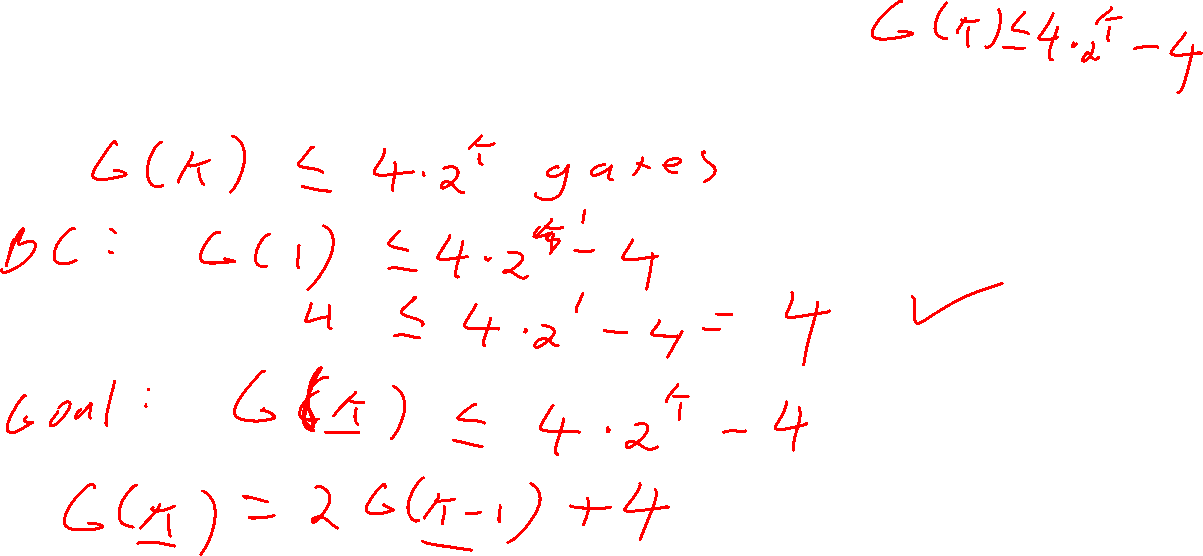 G(k) ≤ 4·2^k - 4
G(k) ≤ 4·2^k gates
BC: G(1) ≤ 4·2^1 - 4
4 ≤ 4·2^1 - 4 = 4 ✓
Goal: G(k) ≤ 4·2^k - 4
G(k) = 2G(k-1) + 4